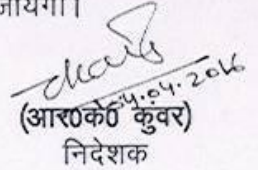 जायेगा।
04.04.2016
(आर0के0 कुंवर)
निदेशक